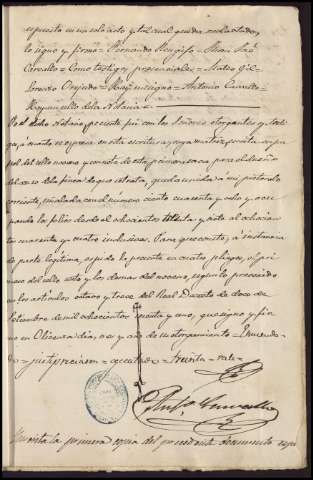 expuesto en un solo acto y tal cual queda redactado,
lo signo y firmo = Fernando = Juan José
Carvallo = Como testigos presenciales = Mateo Gil =
Lorenzo Orejudo = Hay un signo = Antonio Camilo
Requejo del la Notaria =
Yo el dicho Notario, presente fui con los Señores otorgantes y testi-
gos, á cuanto se expresa en esta escritura cuya matriz escrita en pa-
pel del sello noveno y con nota de esta primera saca para el dueño
del de la finca de que se trata, queda unida á mi protocolo
corriente, señalada con el número ciento cuarenta y ocho y ocu-
pando los folios desde el ochocientos treinta y siete al ochocien-
tos cuarenta y cuatro inclusives. Para que conste, á instancia
de parte legitima, expido la presente en cuatro pliegos, el pri-
mero del sello sexto y los demas del noveno, segun lo prevenido
en los articulos octavo y trece del Real Decreto de doce de
Setiembre de mil ochocientos sesenta y uno, que signo y fir-
mo en dia, mes y año de su otorgamiento = Enmenda-
do = justipreciaron = ejecutado = treinta = vale =
Inscrita la primera copia del precedente documento